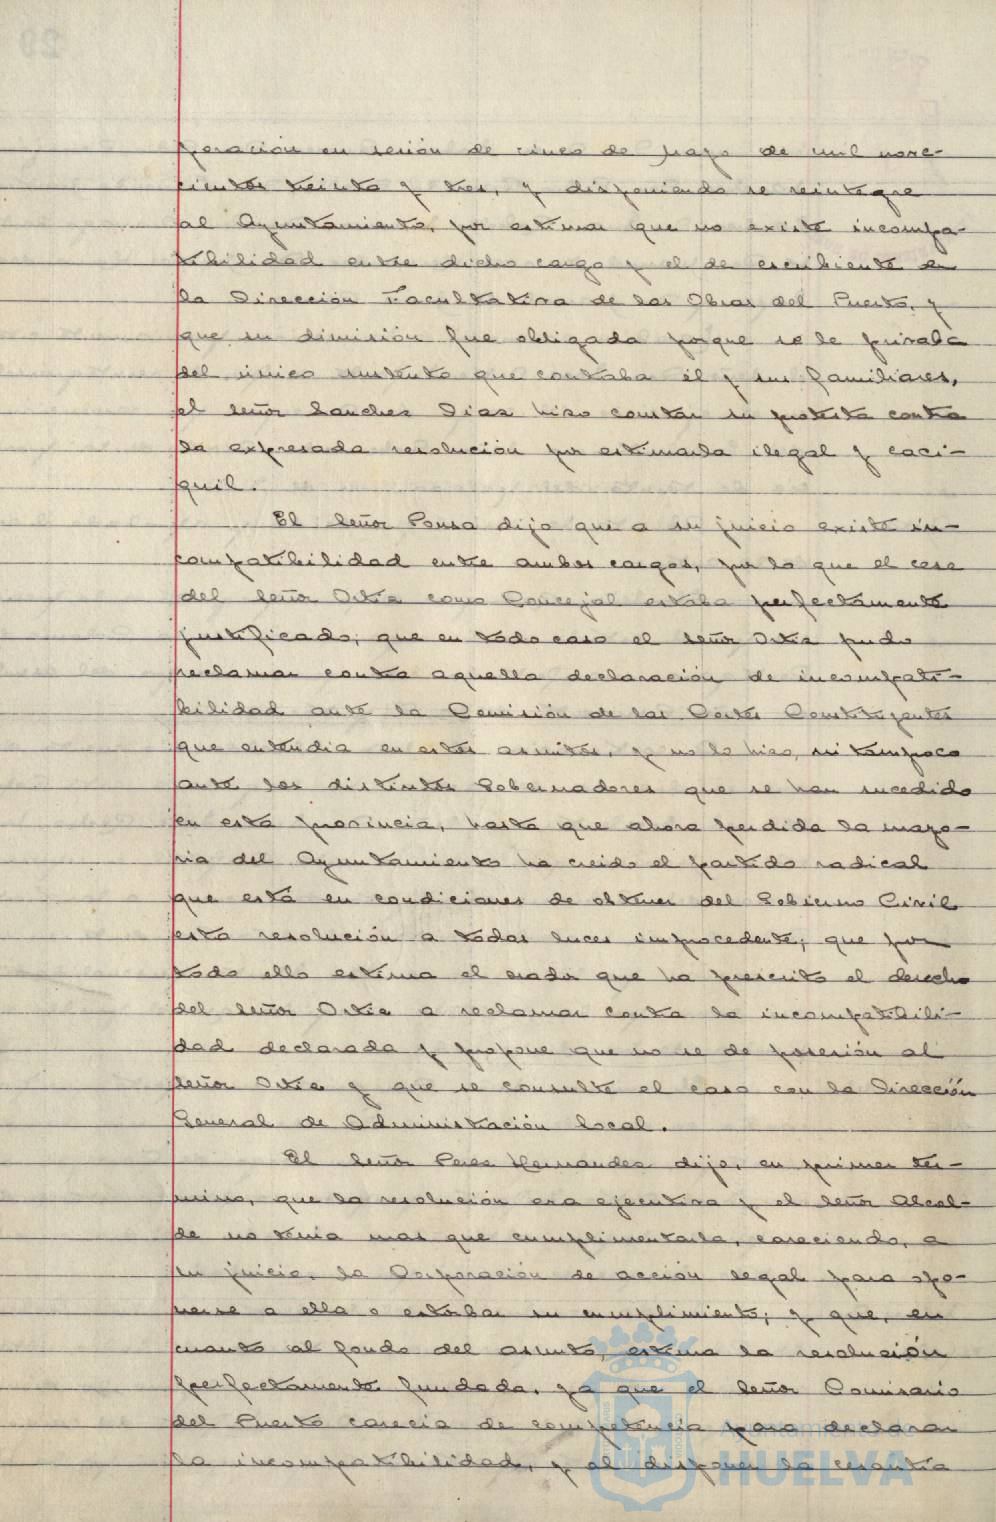 poración en sesión de cinco de mayo de mil nove-
cientos treinta y tres, y disponiendo se reintegre
al Ayuntamiento, por estimar que no existe incompa-
tibilidad entre dicho cargo y el de escribiente de
la Dirección Facultativa de las Obras del Puerto, y
que su dimisión fue obligada porque se le privaba
del único sustento que contaba él y sus familiares,
el señor Sanchez Diaz hizo constar su protesta contra
la expresada resolución por estimarla ilegal y caci-
quil.
El señor Ponsa dijo que a su juicio existe in-
compatibilidad entre ambos cargos, por lo que el cese
del señor Oria como Concejal estaba perfectamente
justificado; que en todo caso el señor Oria pudo
reclamar contra aquella declaración de incompati-
bilidad ante la Comisión de las Cortes Constituyentes
que entendia en estos asuntos, y no lo hizo, ni tampoco
ante los distintos Gobernadores que se han sucedido
en esta provincia, hasta que ahora perdida la mayo-
ria del Ayuntamiento ha creido el partido radical
que está en condiciones de obtener del Gobierno Civil
esta resolución a todas luces improcedente; que por
todo ello estima el orador que ha prescrito el derecho
del señor Oria a reclamar contra la incompatibili-
dad declarada y propone que no se de posesión al
señor Oria y que se consulte el caso con la Dirección
General de Administración local.
El señor Perez Hernandez dijo, en primer tér-
mino, que la resolución era ejecutiva y el señor Alcal-
de no tenia mas que cumplimentarla, careciendo, a
su juicio, la Corporación de acción legal para opo-
nerse a ella o estorbar su cumplimiento; y que, en
cuanto al fondo del asunto, estima la resolución
perfectamente fundada, ya que el señor Comisario
del Puerto carecia de competencia para declarar
la incompatibilidad, y al disponer la cesantía
Ayuntamiento de
HUELVA